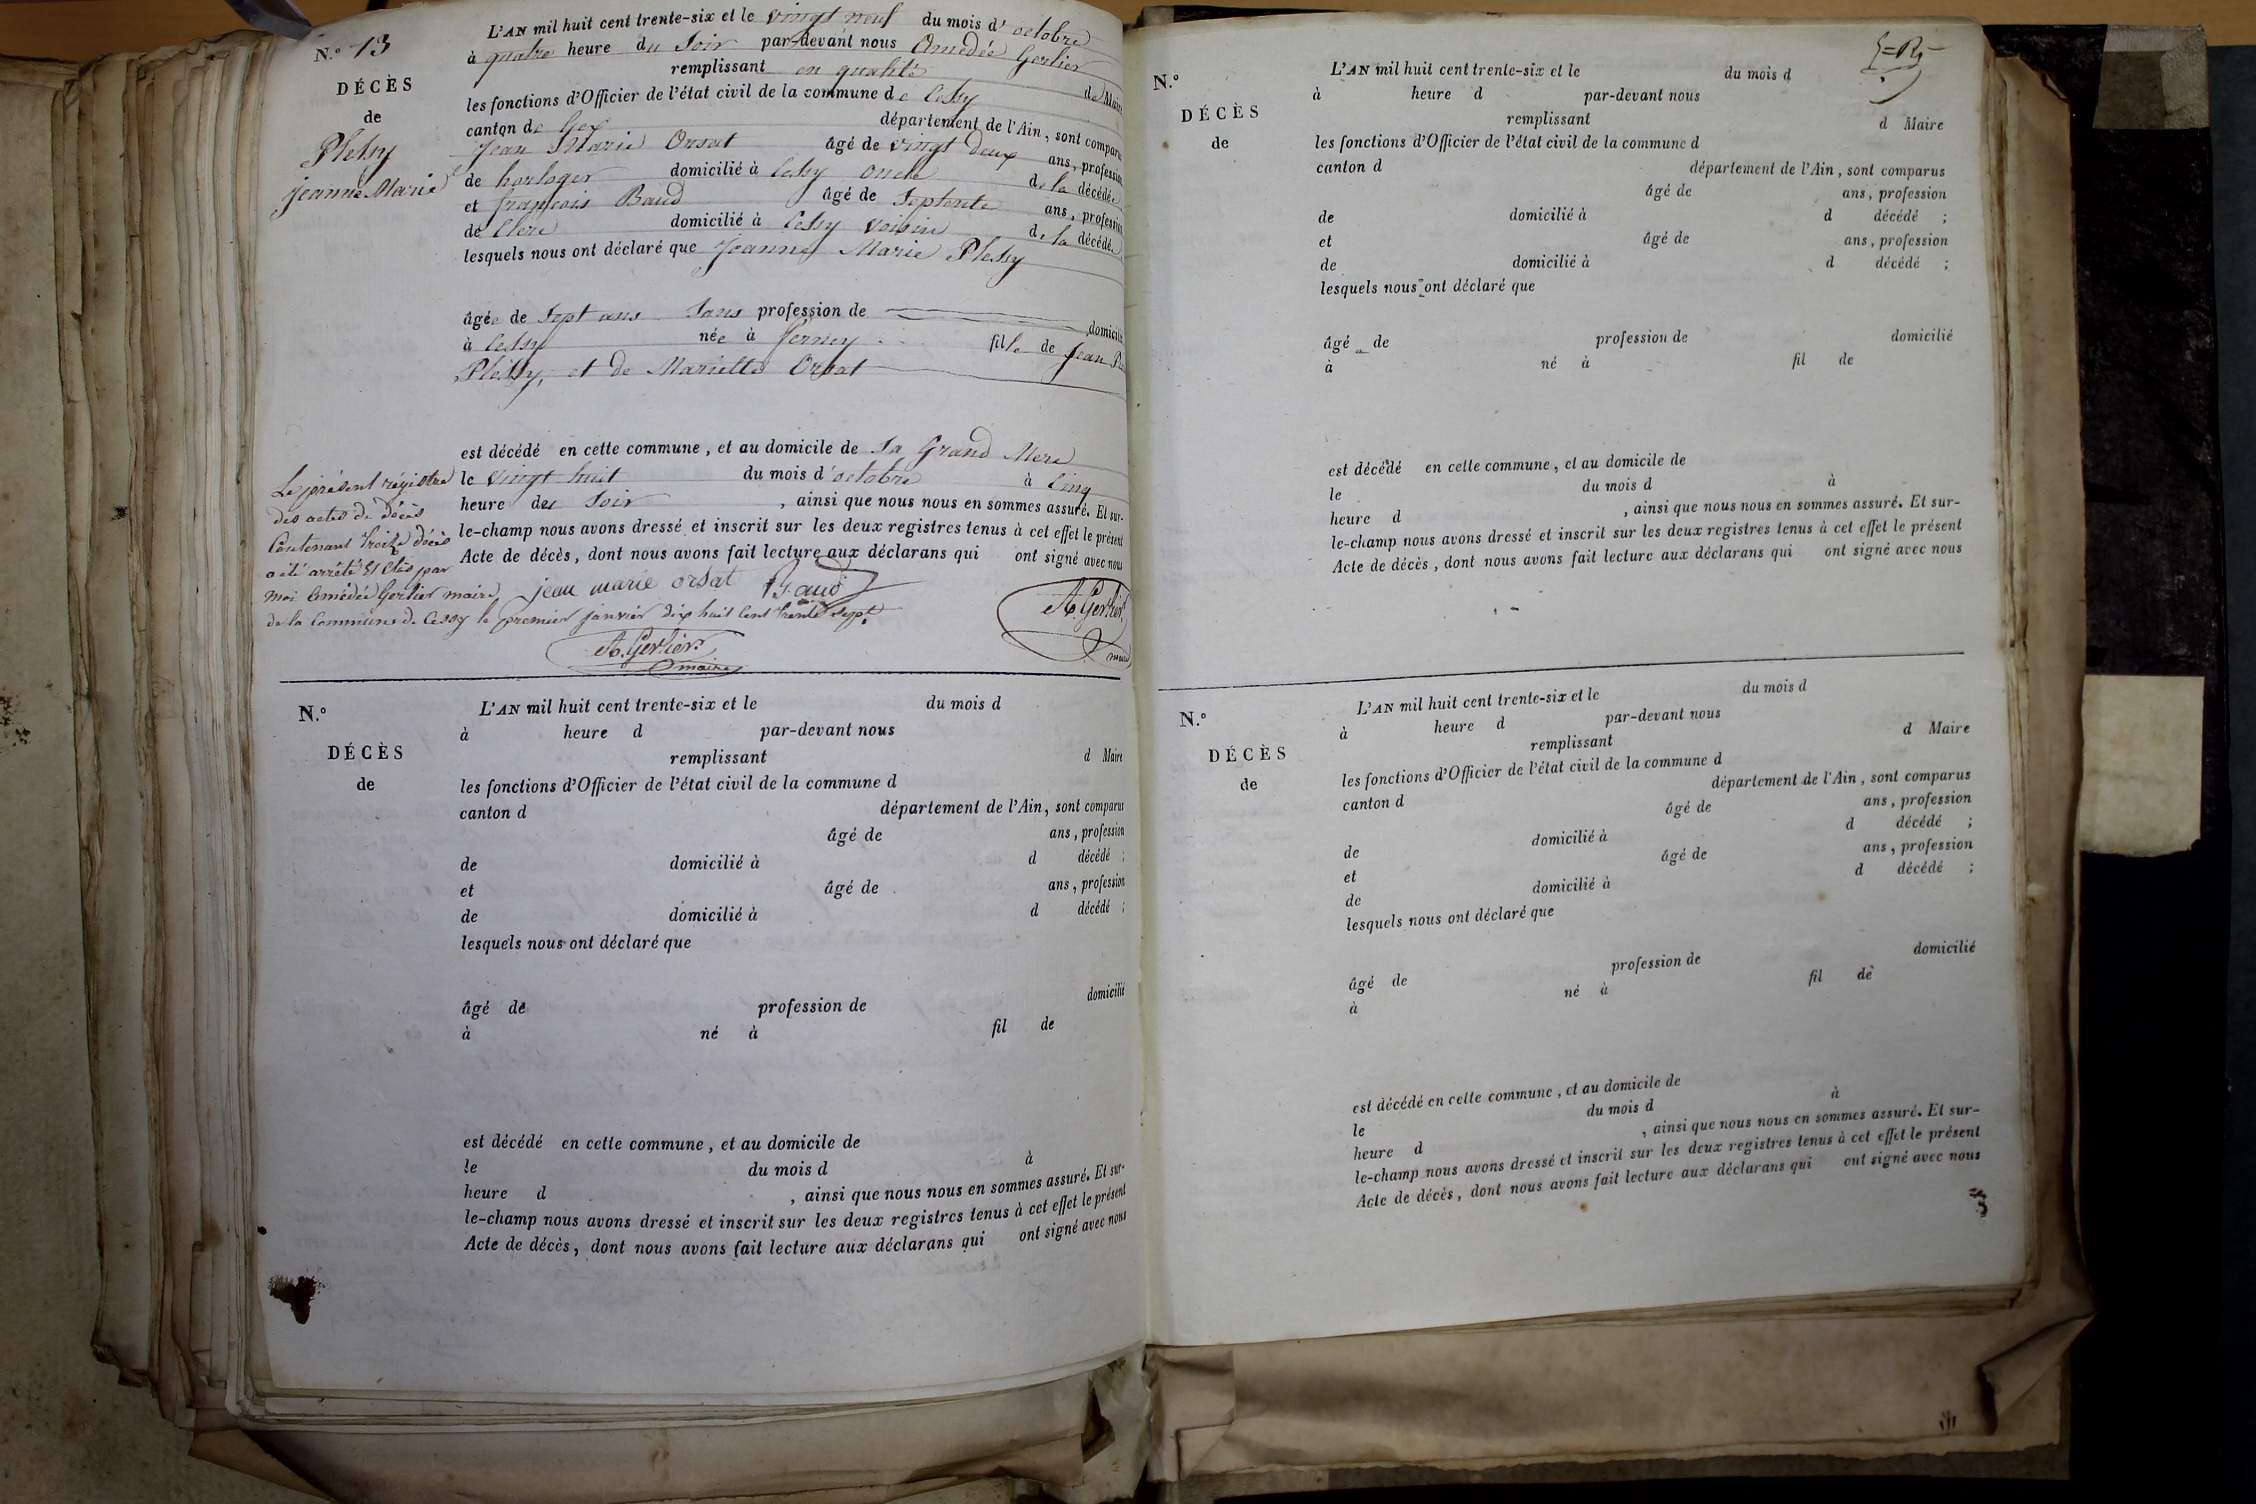 N.º 13
DÉCÈS
de
Plessy
jeanne Marie
L'AN mil huit cent trente-six et le vingt neuf du mois d'octobre
à quatre heure du Soir par-devant nous Amédée Gerlier
remplissant en qualité de Maire
les fonctions d'Officier de l'état civil de la commune de Cessy
canton de Gex département de l'Ain, sont comparus
Jean Marie Orsat âgé de vingt deux ans, profession
de horloger domicilié à Cessy oncle de la décédée
et françois Baud âgé de Septente ans, profession
de Clerc domicilié à Cessy voisin de la décédée
lesquels nous ont déclaré que Jeanne Marie Plessy
âgée de Sept ans Sans profession de domicilié
à Cessy née à ferney fille de Jean
Plessy, et de Mariette Orsat
est décédé en cette commune, et au domicile de Sa Grand Mere
le vingt huit du mois d'octobre à Cinq
heure du Soir, ainsi que nous nous en sommes assuré. Et sur-
le-champ nous avons dressé et inscrit sur les deux registres tenus à cet effet le présent
Acte de décès, dont nous avons fait lecture aux déclarans qui ont signé avec nous
jean marie orsat Baud A. Gerlier maire
Le présent régistre
des actes de décès
Contenant treize décès
a été arrêté Et Clos par
moi Amédée Gerlier maire
de la Commune de Cessy le premier janvier dix huit Cent trente Sept.
A. Gerlier
maire
N.º
DÉCÈS
de
L'AN mil huit cent trente-six et le du mois d
à heure d par-devant nous
remplissant d Maire
les fonctions d'Officier de l'état civil de la commune d
canton d département de l'Ain, sont comparus
âgé de ans, profession
de domicilié à d décédé ;
et âgé de ans, profession
de domicilié à d décédé ;
lesquels nous ont déclaré que
âgé de profession de domicilié
à né à fil de
est décédé en cette commune, et au domicile de
le du mois d à
heure d , ainsi que nous nous en sommes assuré. Et sur-
le-champ nous avons dressé et inscrit sur les deux registres tenus à cet effet le présent
Acte de décès, dont nous avons fait lecture aux déclarans qui ont signé avec nous
N.º
DÉCÈS
de
L'AN mil huit cent trente-six et le du mois d
à heure d par-devant nous
remplissant d Maire
les fonctions d'Officier de l'état civil de la commune d
canton d département de l'Ain, sont comparus
âgé de ans, profession
de domicilié à d décédé ;
et âgé de ans, profession
de domicilié à d décédé ;
lesquels nous ont déclaré que
âgé de profession de domicilié
à né à fil de
est décédé en cette commune, et au domicile de
le du mois d à
heure d , ainsi que nous nous en sommes assuré. Et sur-
le-champ nous avons dressé et inscrit sur les deux registres tenus à cet effet le présent
Acte de décès, dont nous avons fait lecture aux déclarans qui ont signé avec nous
N.º
DÉCÈS
de
L'AN mil huit cent trente-six et le du mois d
à heure d par-devant nous
remplissant d Maire
les fonctions d'Officier de l'état civil de la commune d
canton d département de l'Ain, sont comparus
âgé de ans, profession
de domicilié à d décédé ;
et âgé de ans, profession
de domicilié à d décédé ;
lesquels nous ont déclaré que
âgé de profession de domicilié
à né à fil de
est décédé en cette commune, et au domicile de
le du mois d à
heure d , ainsi que nous nous en sommes assuré. Et sur-
le-champ nous avons dressé et inscrit sur les deux registres tenus à cet effet le présent
Acte de décès, dont nous avons fait lecture aux déclarans qui ont signé avec nous